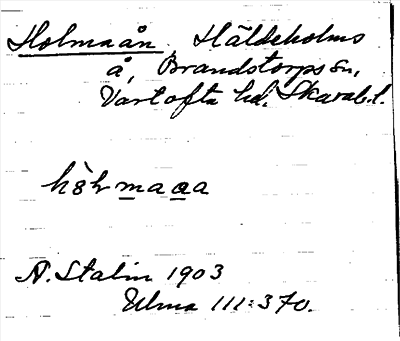 Holmaån, Häldeholms
å, Brandstorps sn,
Vartofta hd. Skarab.l.
A. Stalin 1903
Ulma 111:370.